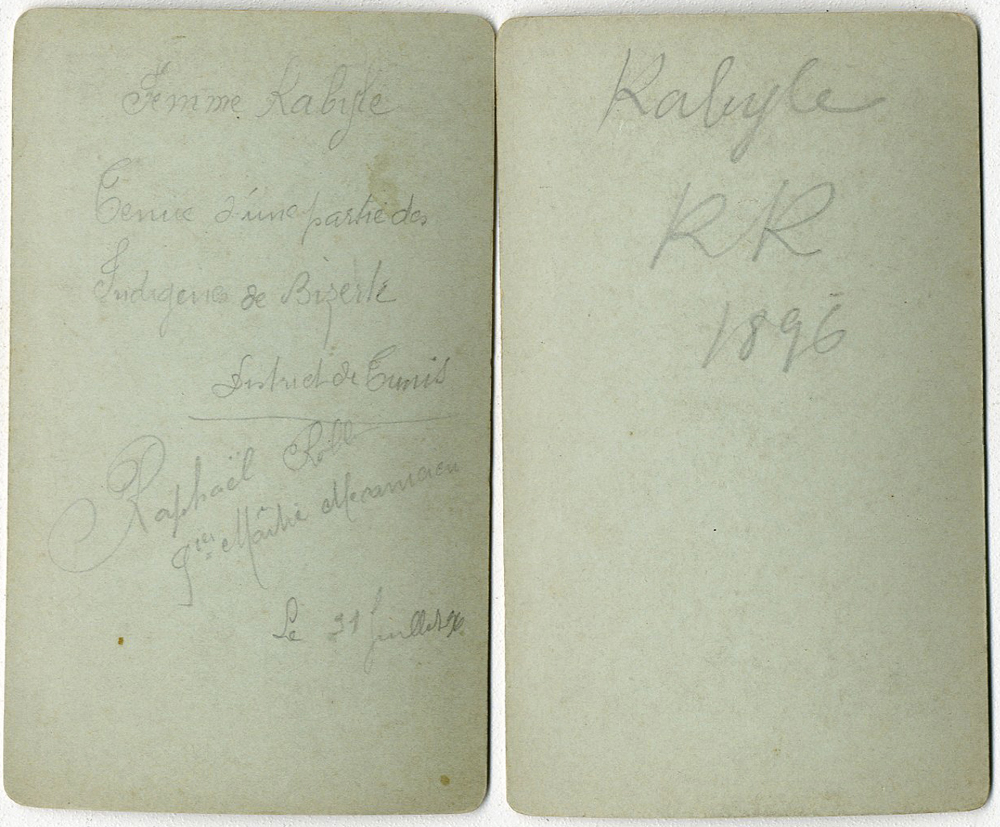 Femme Kabyle
Tenue d'une partie des
Indigènes de Bizerte
District de Tunis
Raphaël
Maître Mécanicien
Le 21 Juillet 96
Kabyle
RR
1896